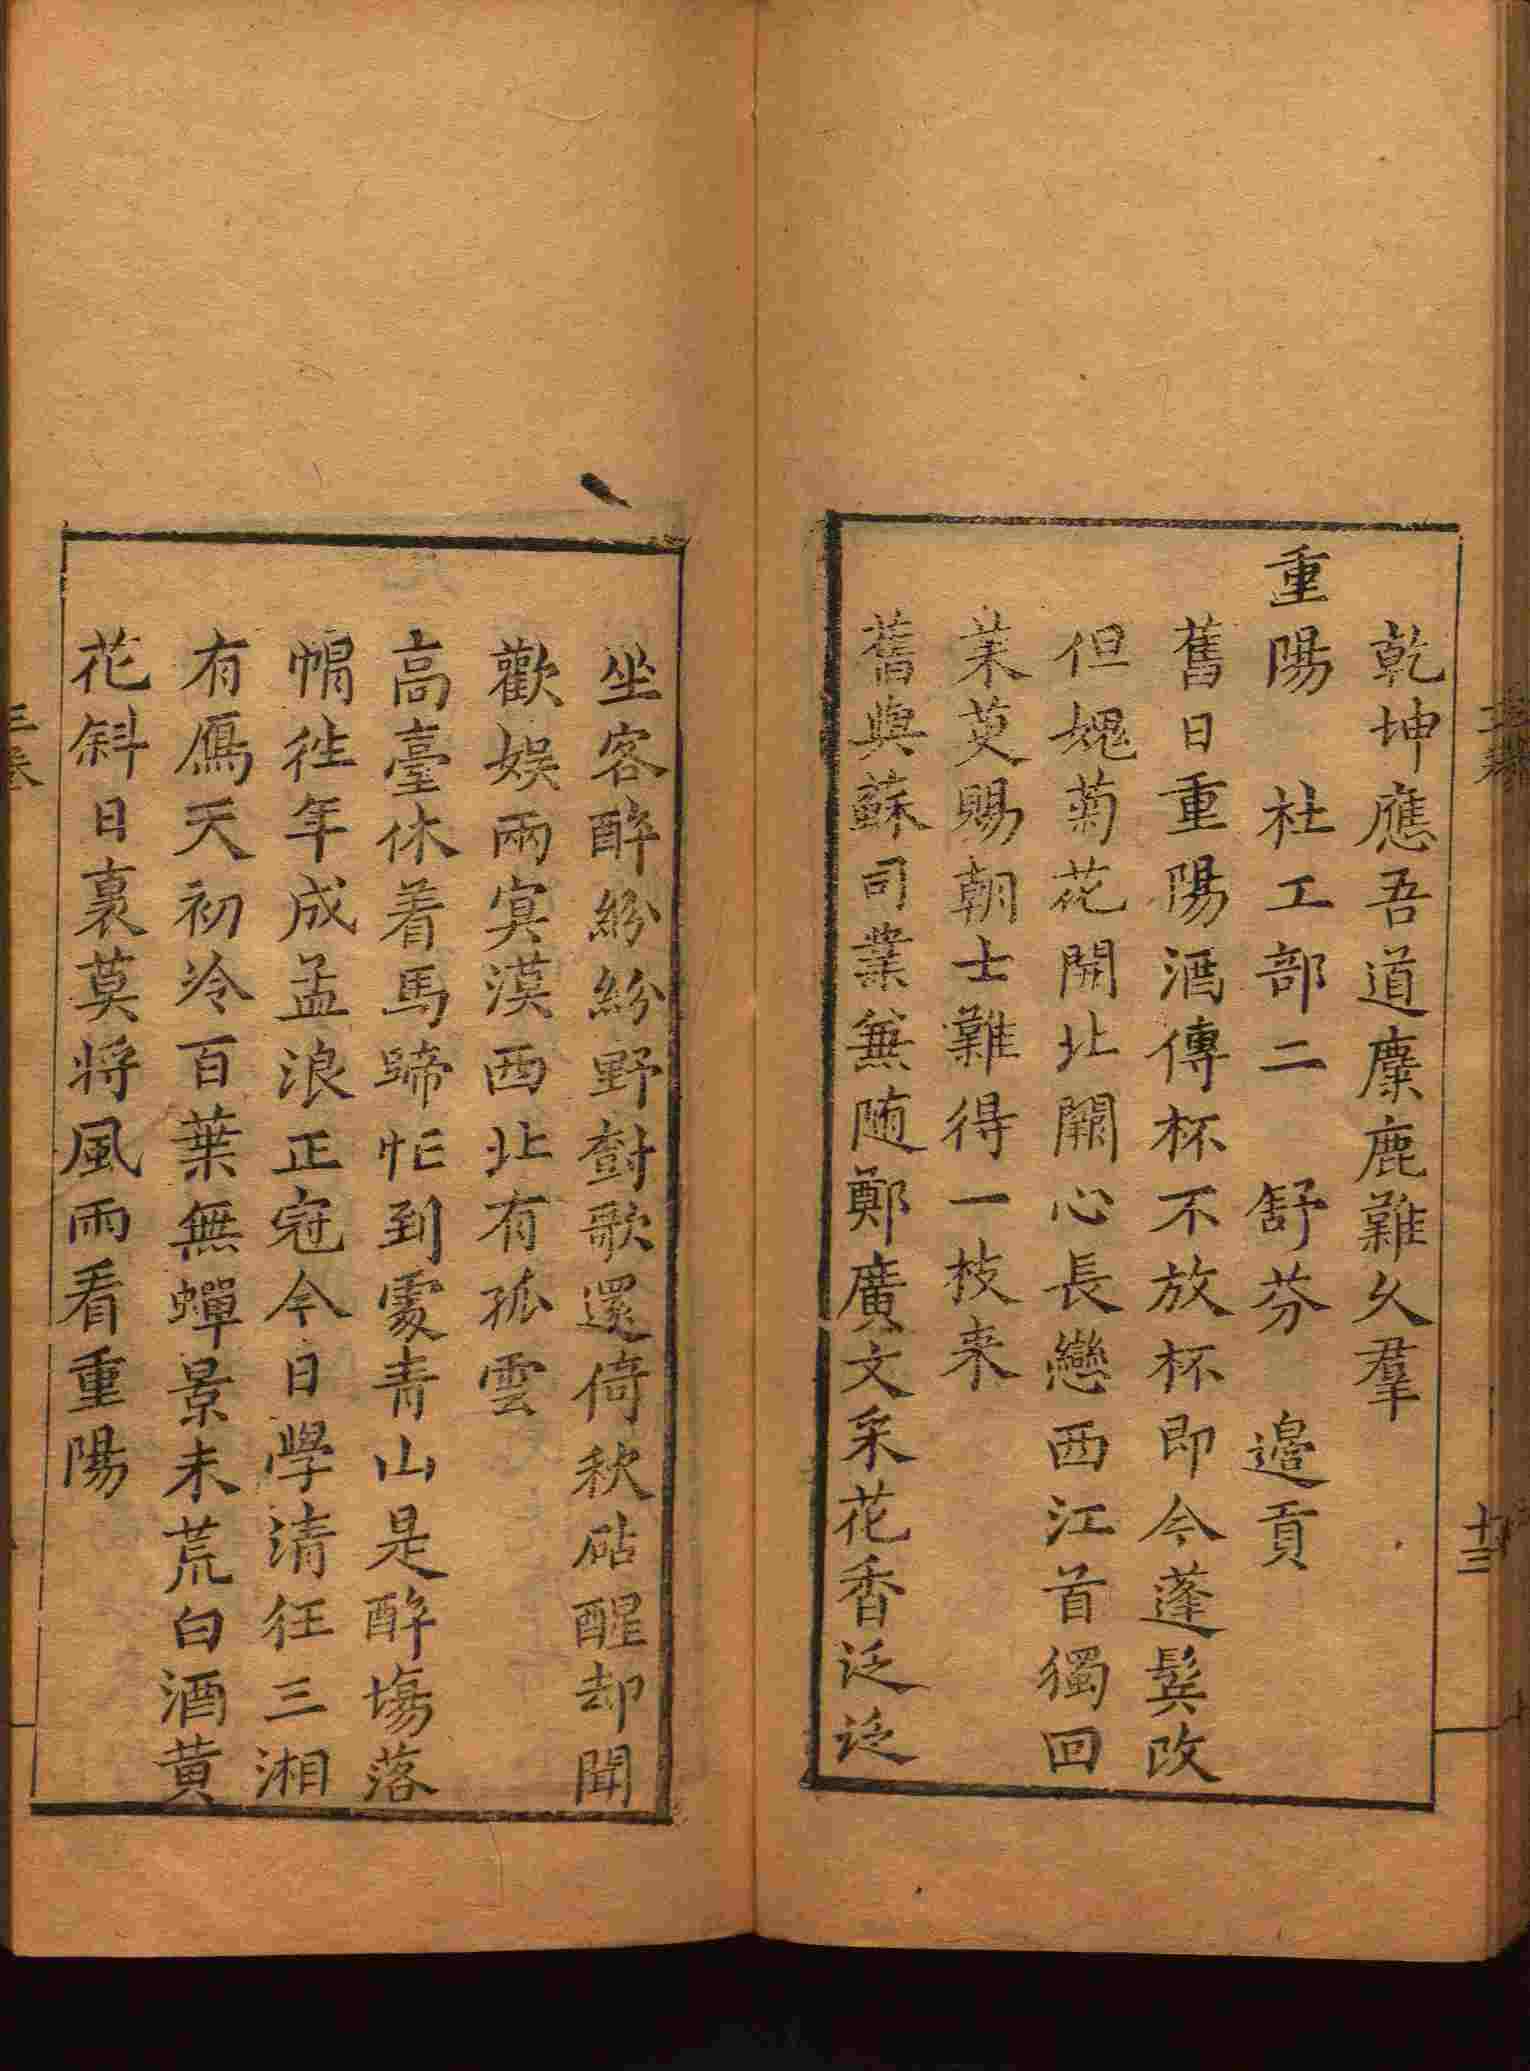 乾坤應吾道麋鹿難久羣
重陽　杜工部二　舒芬　邉貢
舊日重陽酒傳杯不放杯即今蓬鬂改
但媿菊花開北闕心長戀西江首獨回
茱萸賜朝士難得一枝来
舊與蘇司業兼随鄭廣文采花香泛泛
坐客醉紛紛野樹歌還倚秋砧醒却聞
歡娱兩寞漠西北有孤雲
髙臺休着馬蹄忙到處青山是醉塲落
㡌徃年成孟浪正冠今日學清狂三湘
有鴈天初冷百葉無蟬景未荒白酒黄
花斜日裏莫将風雨看重陽
三卷
十三